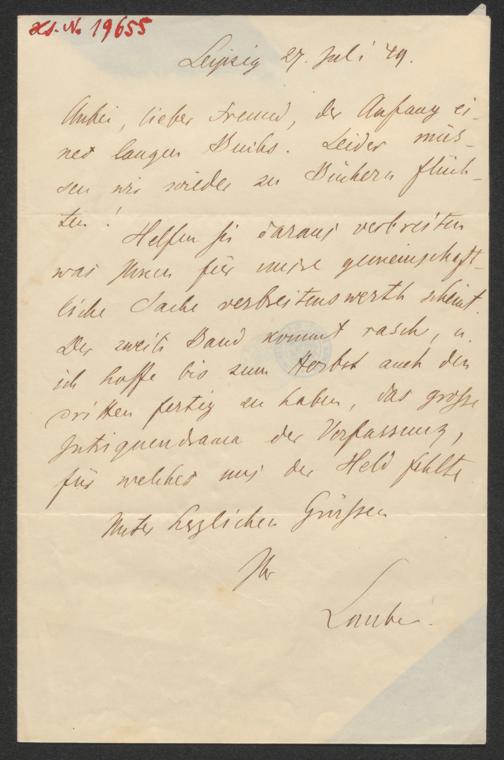 Hs. No 19655
Leipzig 27. Juli 49.
Anbei, lieber Freund, der Anfang ei-
nes langen Buchs. Leider müs-
sen wir wieder zu Büchern flüch-
ten!
Helfen Sie daraus verbreiten
was Ihnen für unsre gemeinschaft-
liche Sache verbreitenswerth scheint
Der zweite Band kommt rasch, u.
ich hoffe bis zum Herbst auch den
dritten fertig zu haben, das große
Intriguendrama der Verfassung,
für welches nur der Held fehlte
Unter herzlichen Grüssen
Ihr
Laube.